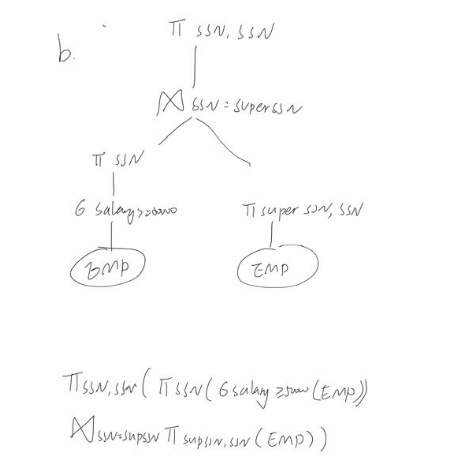 π SSN, SSN
b.
⋈ SSN = superSSN
π SSN
σ salary>=5000
π super SSN, SSN
EMP
EMP
π SSN, SSN ( π SSN ( σ salary ≥ 5000 (EMP))
⋈ SSN=supSSN π supSSN, SSN (EMP))